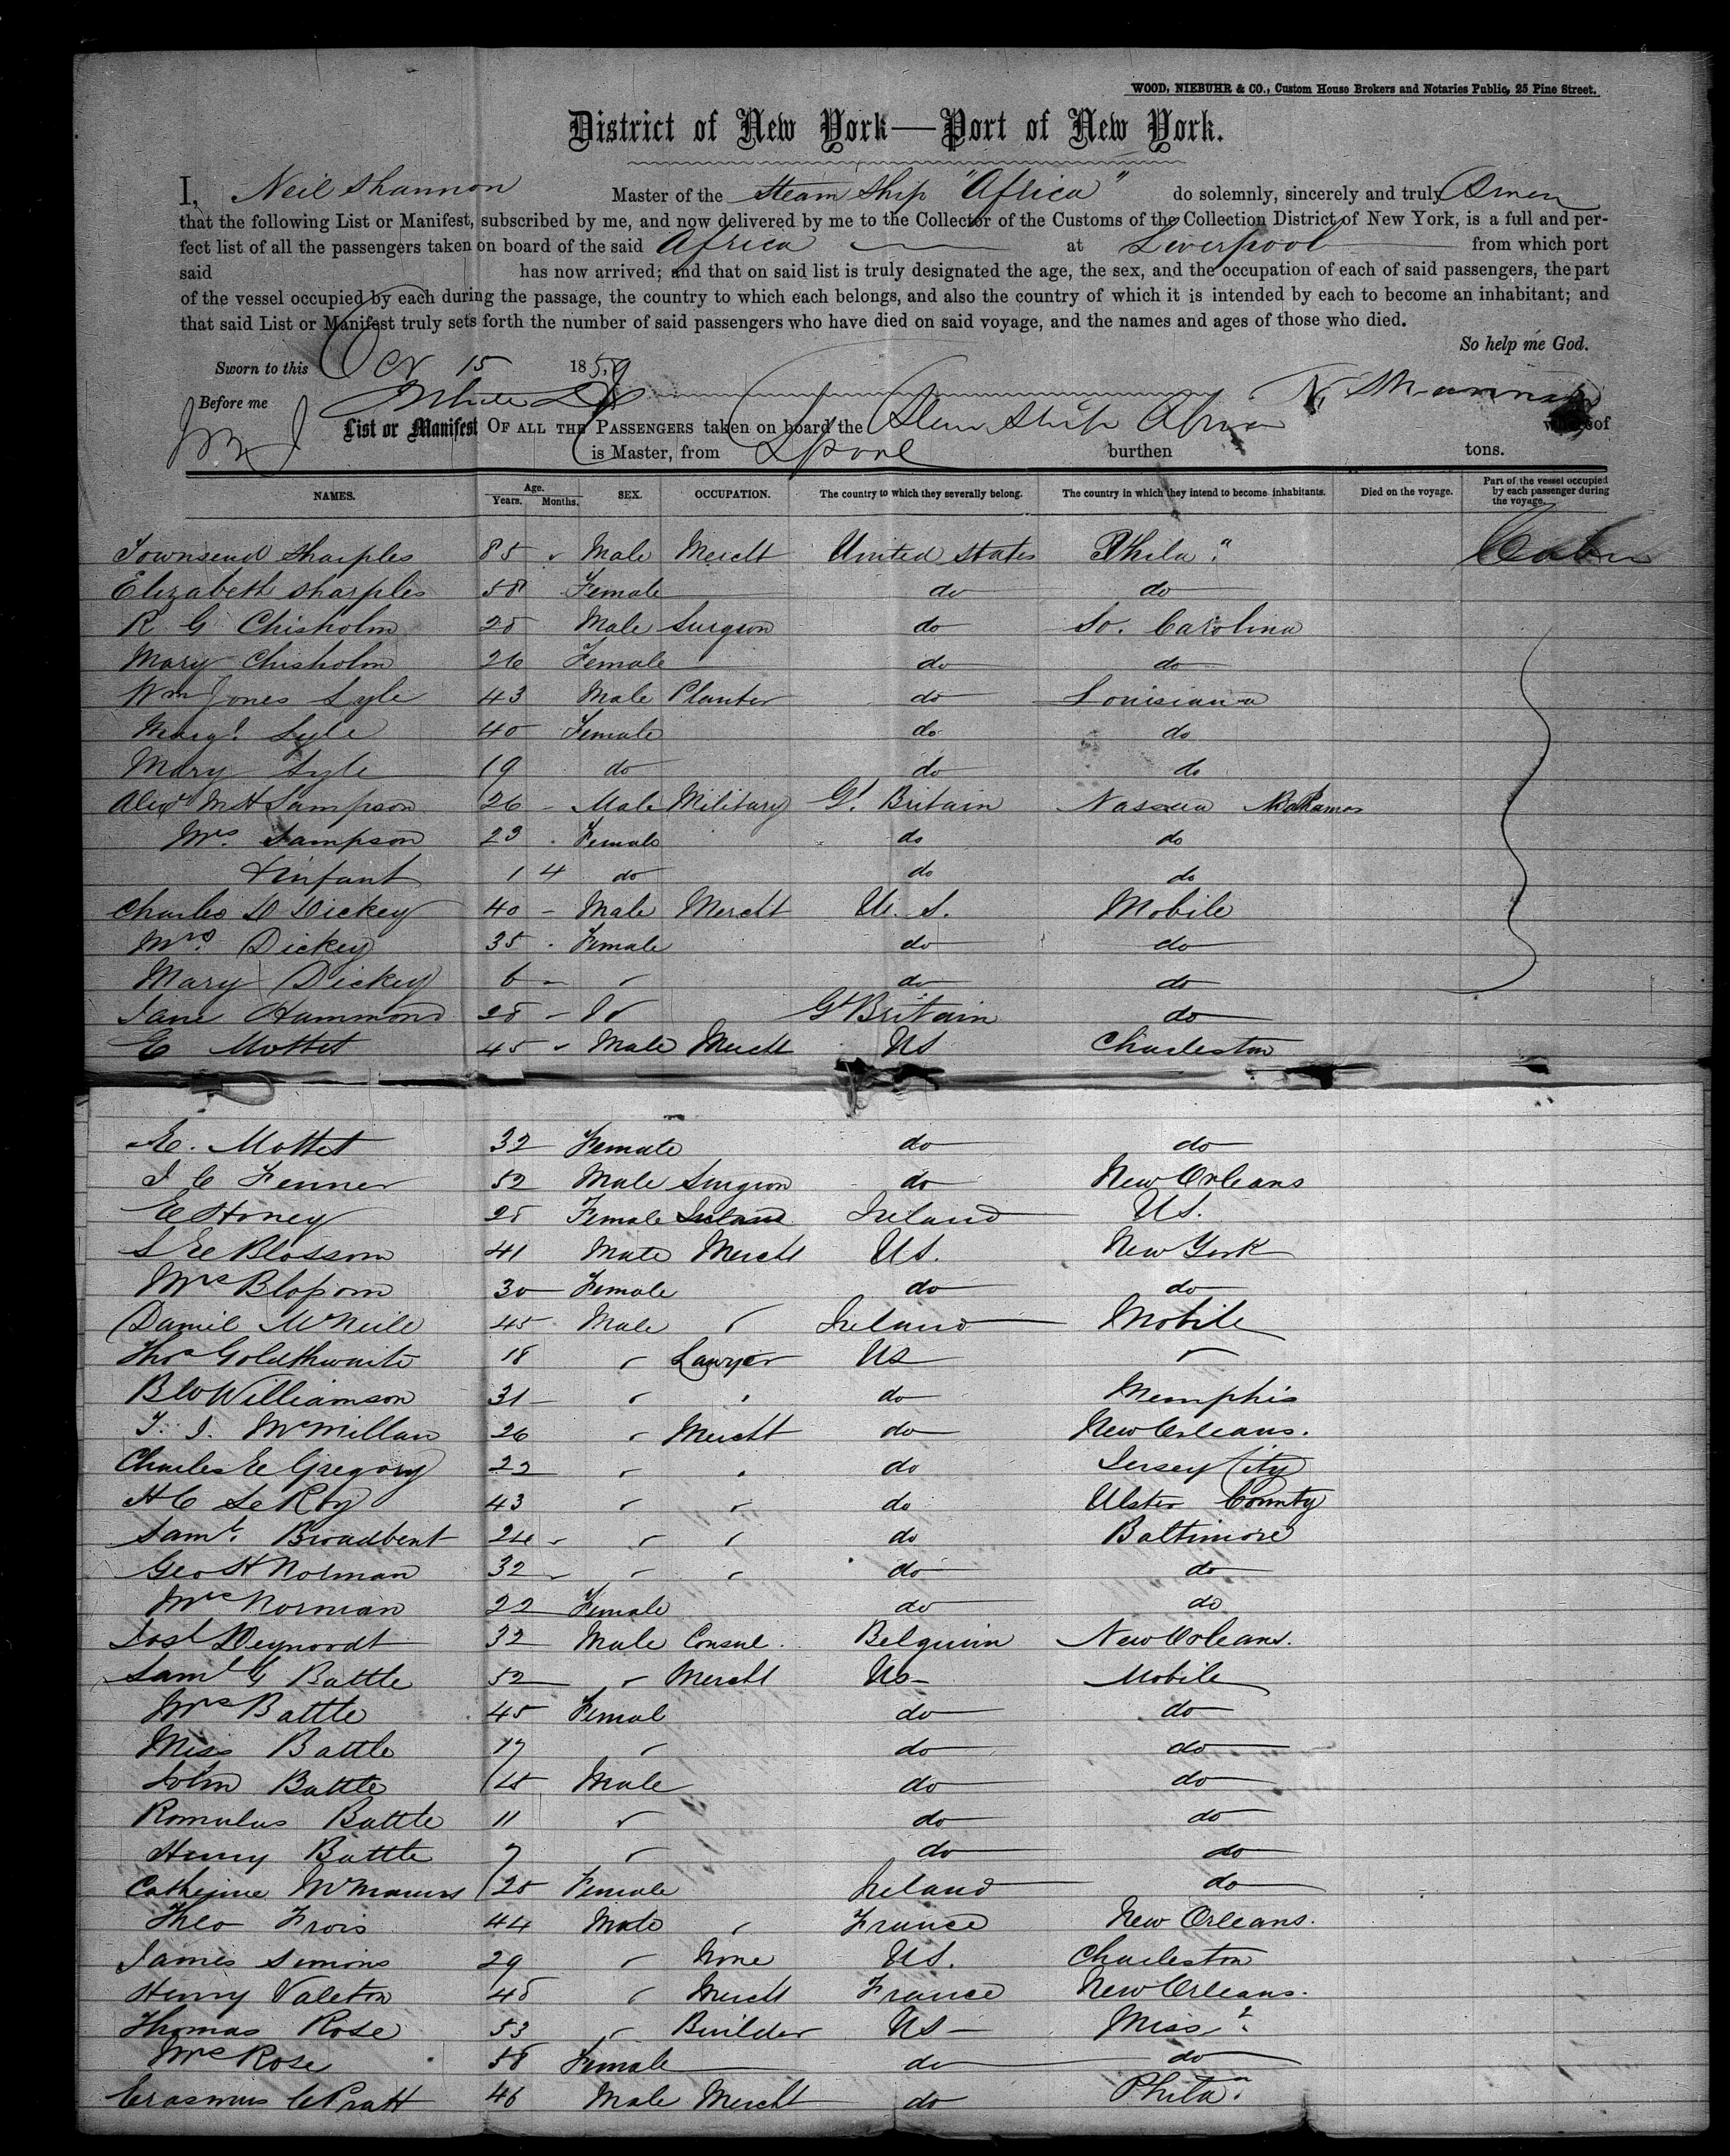 WOOD, NIEBUHR & CO., Custom House Brokers and Notaries Public, 25 Pine Street.
District of New York—Port of New York.
I, Neil Shannon Master of the Steam Ship "Africa" do solemnly, sincerely and truly
that the following List or Manifest, subscribed by me, and now delivered by me to the Collector of the Customs of the Collection District of New York, is a full and per-
fect list of all the passengers taken on board of the said Africa at Liverpool from which port
said has now arrived; and that on said list is truly designated the age, the sex, and the occupation of each of said passengers, the part
of the vessel occupied by each during the passage, the country to which each belongs, and also the country of which it is intended by each to become an inhabitant; and
that said List or Manifest truly sets forth the number of said passengers who have died on said voyage, and the names and ages of those who died.
So help me God.
Sworn to this Oct 15 1859
Before me N. Shannon
List or Manifest OF ALL THE PASSENGERS taken on board the Steam Ship Africa whereof
is Master, from Lpool burthen tons.
NAMES. Age. Years. Months. SEX. OCCUPATION. The country to which they severally belong. The country in which they intend to become inhabitants. Died on the voyage. Part of the vessel occupied by each passenger during the voyage.
Townsend Sharples 85 Male Mercht United States Phila. Cabin
Elizabeth Sharples 58 Female do do
R G Chisholm 28 Male Surgeon do So. Carolina
Mary Chisholm 26 Female do do
Wm Jones Lyle 43 Male Planter do Louisiana
Margt Lyle 40 Female do do
Mary Lyle 19 do do do
Alexr M H Sampson 26 Male Military Gt. Britain Nassua Bahamas
Mrs. Sampson 23 Female do do
& infant 1 4 do do do
Charles D Dickey 40 Male Mercht U. S. Mobile
Mrs Dickey 35 Female do do
Mary Dickey 6 do do
Jane Hammond 28 do Gt Britain do
E Mottet 45 Male Mercht US Charleston
E. Mottet 32 Female do do
J C Fenner 52 Male Surgeon do New Orleans
E Honey 28 Female Ireland Ireland US.
S E Blossom 41 Male Mercht US. New York
Mrs Blossom 30 Female do do
Daniel McNeile 45 Male Ireland Mobile
Thos Goldthwaite 18 Lawyer US
B W Williamson 31 do Memphis
T. J. McMillan 26 Mercht do New Orleans.
Charles E Gregory 22 do Jersey City
H C Le Roy 43 do Ulster County
Saml. Broadbent 24 do Baltimore
Geo H Norman 32 do do
Mrs Norman 22 Female do do
Josh Deynoodt 32 Male Consul. Belguim New Orleans.
Saml G Battle 52 Mercht US Mobile
Mrs Battle 45 Femal do do
Miss Battle 17 do do
John Battle 15 Male do do
Romulus Battle 11 do do
Henry Battle 7 do do
Catherine McManus 28 Female Ireland do
Theo Frois 44 Male France New Orleans.
James Simons 29 None US. Charleston
Henry Valeton 48 Mercht France New Orleans.
Thomas Rose 53 Builder US Miss
Mrs Rose 58 Female do do
Erasmus C Pratt 46 Male Mercht do Phila.